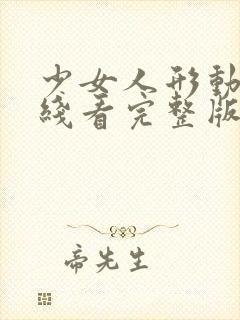 少女人形動
綫看完整版
帝先生